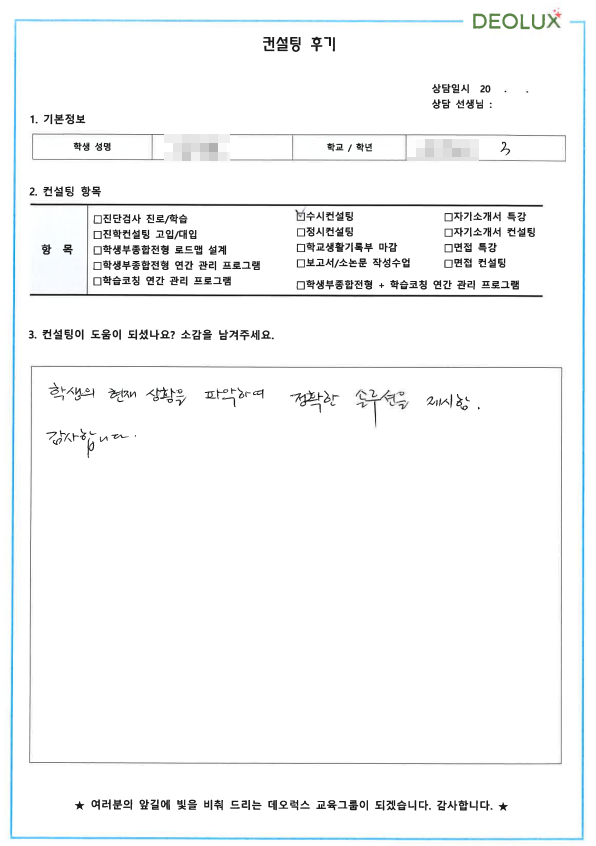 DEOLUX
컨설팅 후기
상담일시 20 . .
상담 선생님 :
1. 기본정보
학생 성명 학교 / 학년 3
2. 컨설팅 항목
항 목
□진단검사 진로/학습
□진학컨설팅 고입/대입
□학생부종합전형 로드맵 설계
□학생부종합전형 연간 관리 프로그램
□학습코칭 연간 관리 프로그램
☑수시컨설팅
□정시컨설팅
□학교생활기록부 마감
□보고서/소논문 작성수업
□학생부종합전형 + 학습코칭 연간 관리 프로그램
□자기소개서 특강
□자기소개서 컨설팅
□면접 특강
□면접 컨설팅
3. 컨설팅이 도움이 되셨나요? 소감을 남겨주세요.
학생의 현재 상황을 파악하여 정확한 솔루션을 제시함.
감사합니다.
★ 여러분의 앞길에 빛을 비춰 드리는 데오럭스 교육그룹이 되겠습니다. 감사합니다. ★